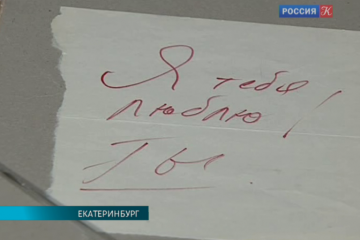 РОССИЯ К
Я тебя
люблю!
Ты.
ЕКАТЕРИНБУРГ